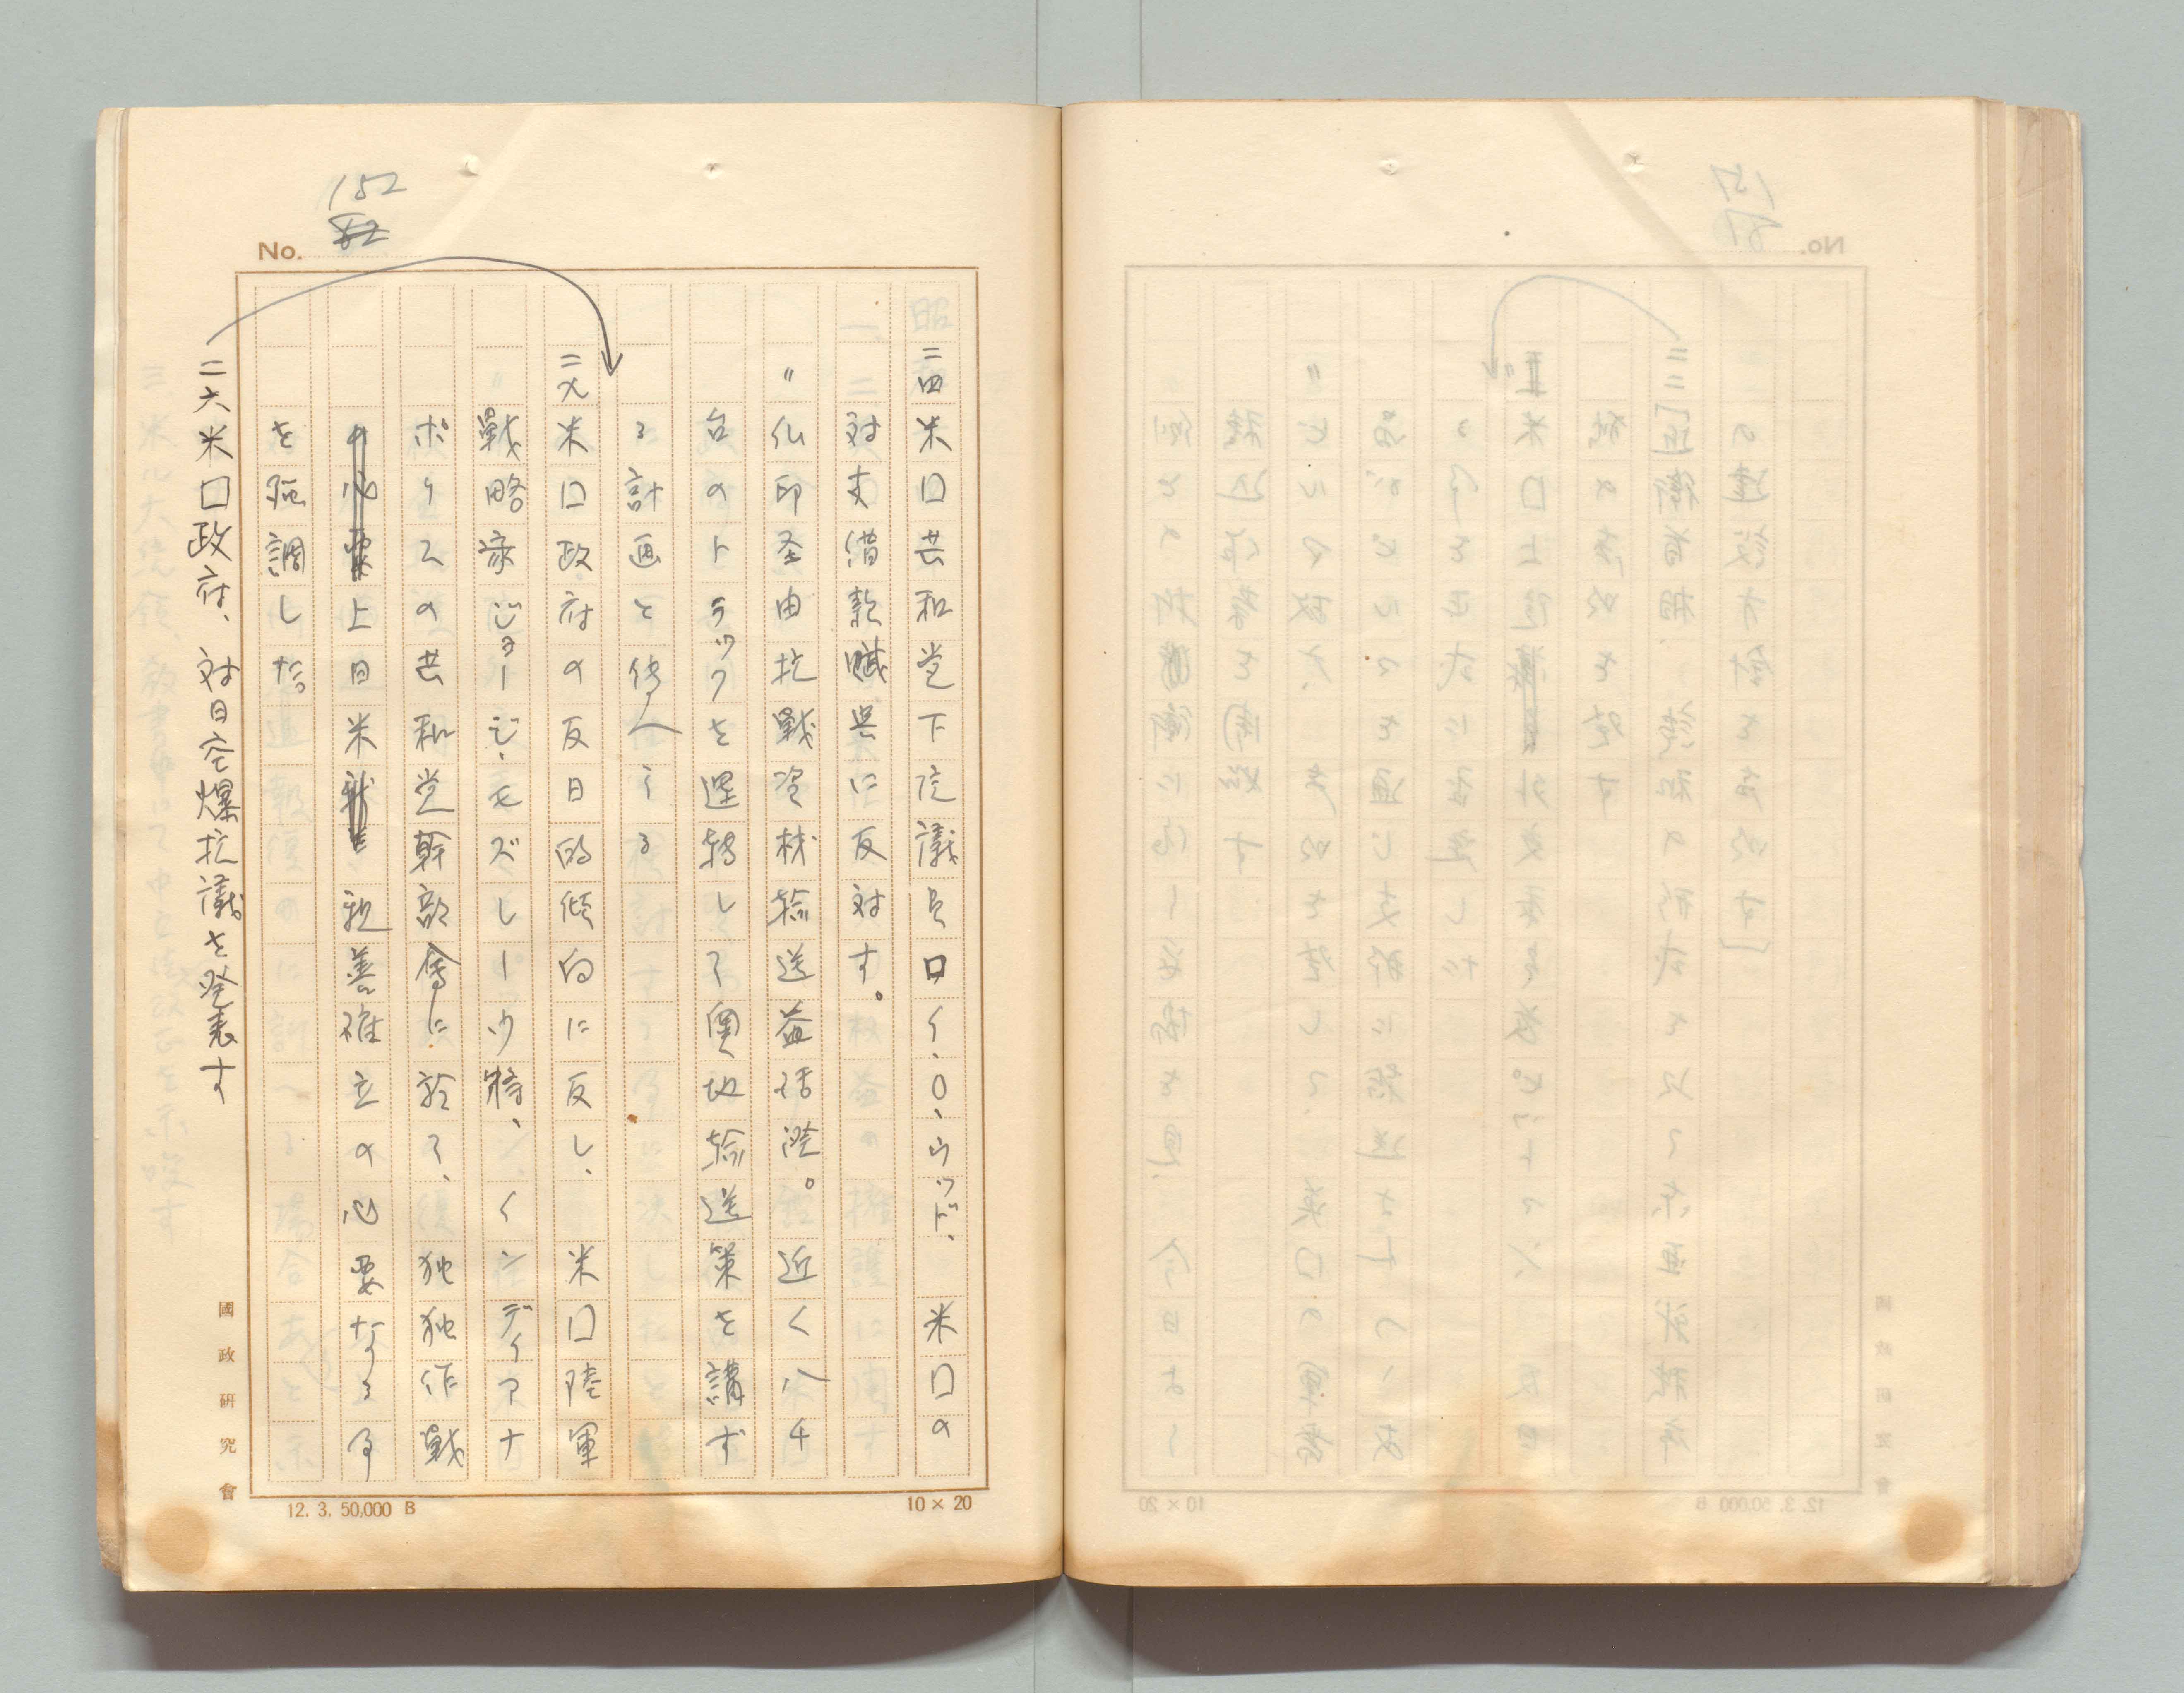 152
82
No.
二四米囗共和党下院議員ロイ、O、ウッド、米囗の
対支借款賦與に反対す。
〃仏印圣由抗戦資材輸送益活溌。近く八千
台のトラックを運転して奥地輸送策を講ず
る計画と傳へらる
二九米囗政府の反日的傾向に反し、米囗陸軍
戦略家ジョージ、モズレー少将、インディアナ
ポリスの共和党幹部會に於て、独独作戦
の必要上日米親善確立の必要なる事
を強調した。
二六米囗政府、対日空爆抗議を発表す
國政研究會
12. 3. 50,000 B
10 × 20